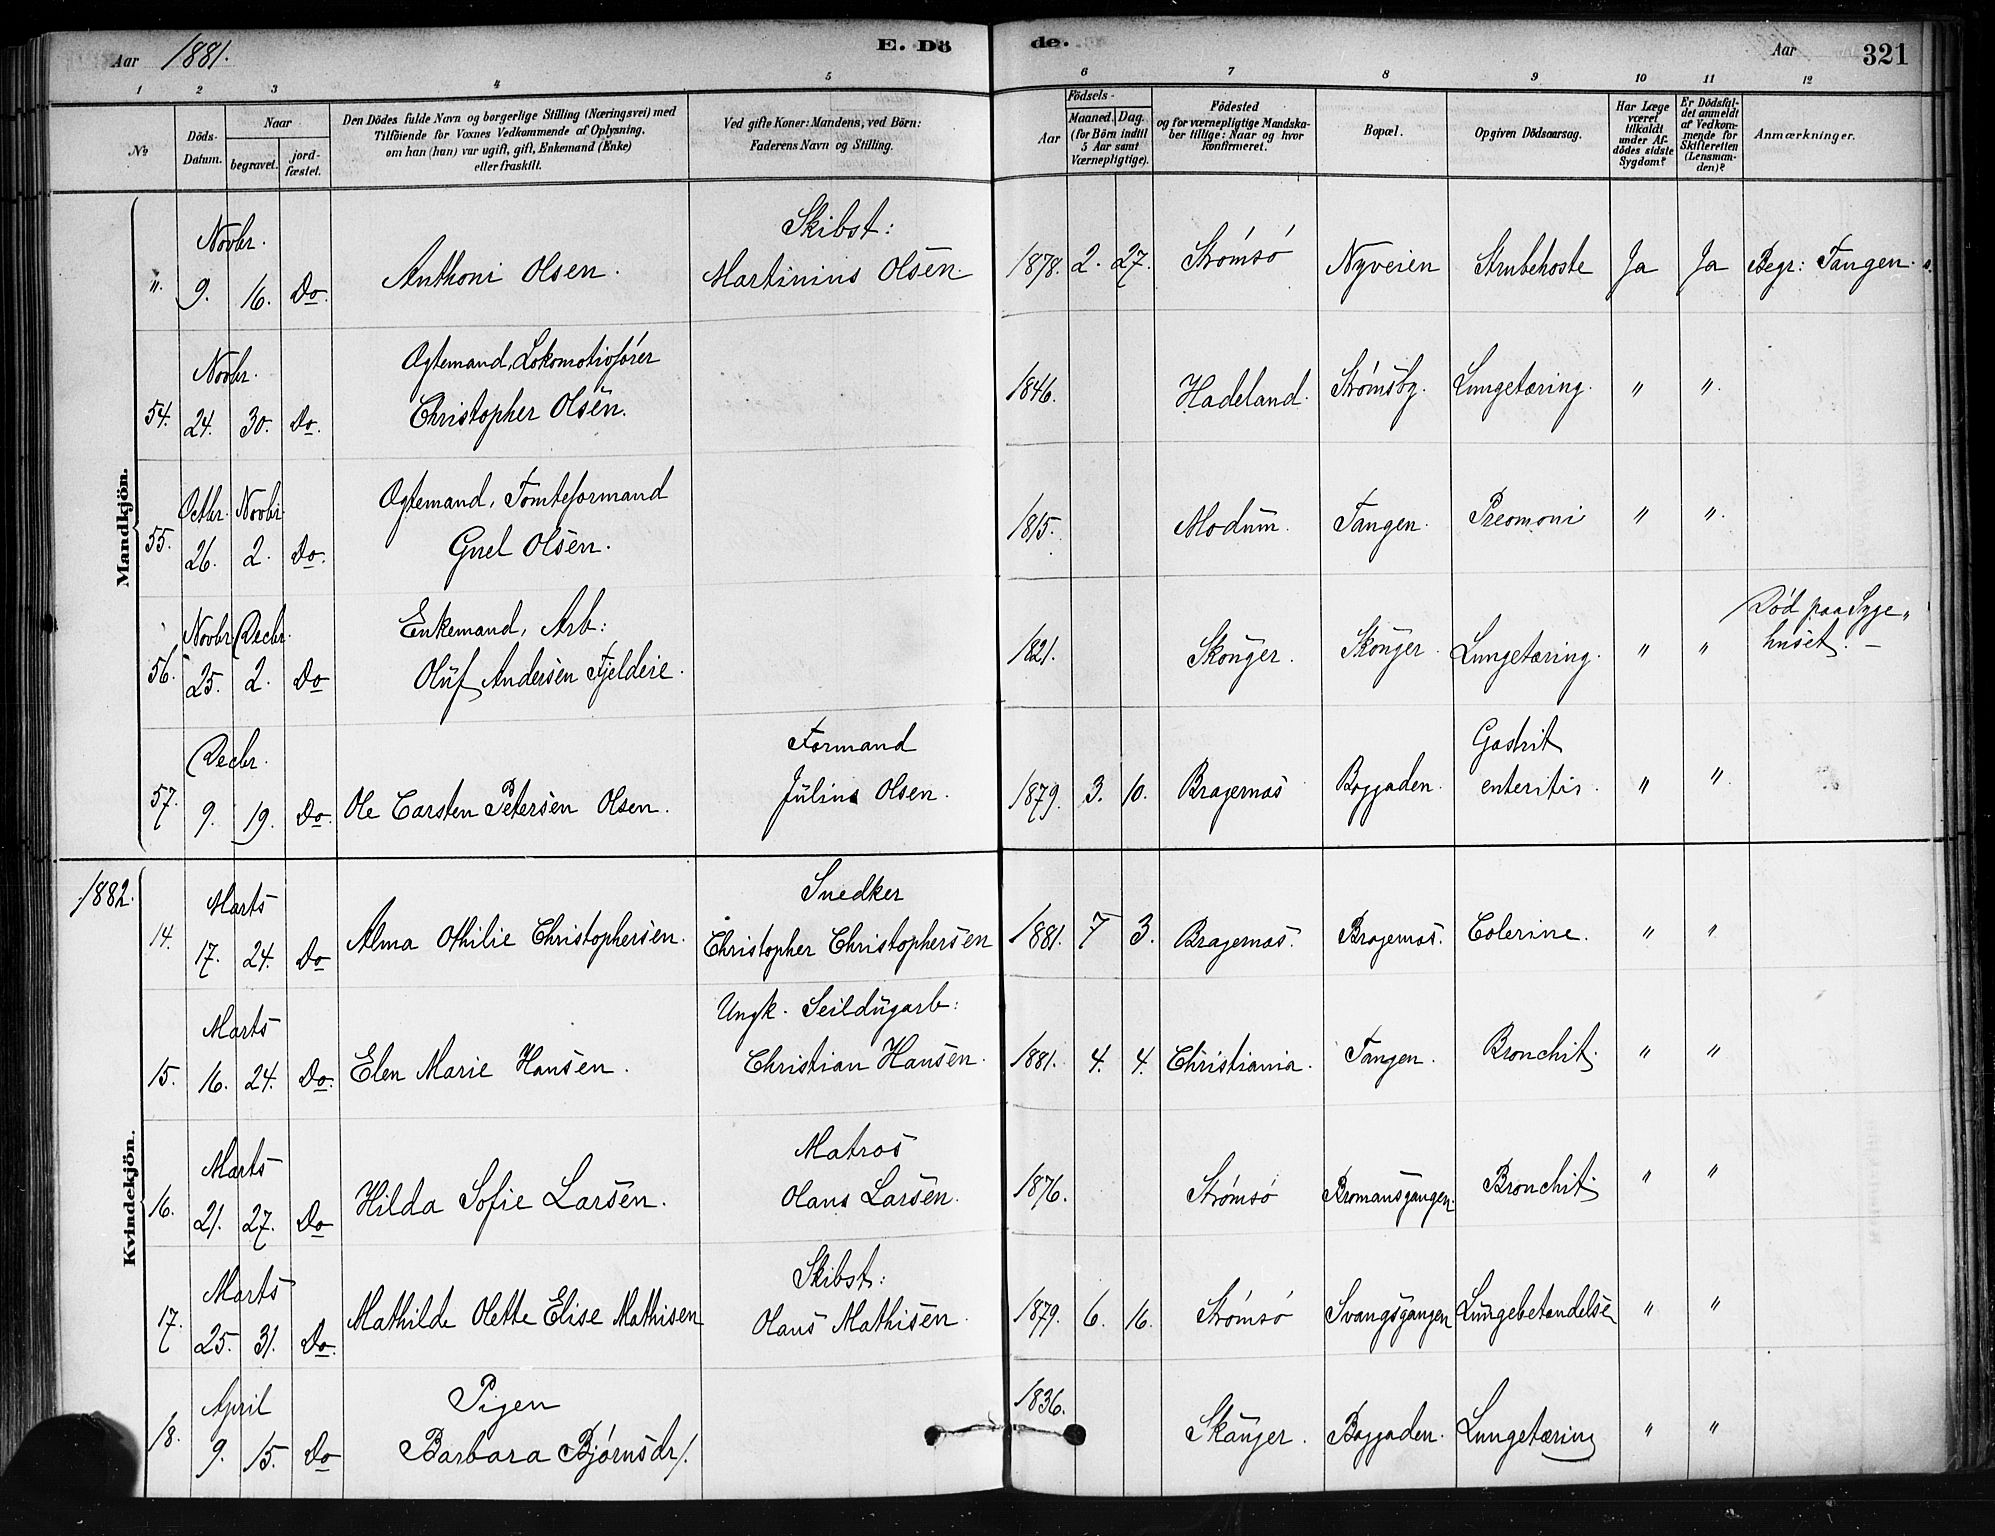 Aar 1881. E. Dö de. Aar 321
1 2 3 4 5 6 7 8 9 10 11 12
No Döds-Datum. Naar begravet. jord-fæstet. Den Dödes fulde Navn og borgerlige Stilling (Næringsvei) med Tilföiende for Voxnes Vedkommende af Oplysning, om han (hun) var ugift, gift, Enkemand (Enke) eller fraskilt. Ved gifte Koner: Mandens, ved Börn: Faderens Navn og Stilling. Födsels- Aar Maaned. Dag. (for Börn indtil 5 Aar samt Værnepligtige). Födested og for værnepligtige Mandskaber tillige: Naar og hvor Konfirmeret. Bopæl. Opgiven Dödsaarsag. Har Læge været tilkaldt under Afdödes sidste Sygdom? Er Dödsfaldet anmeldt af Vedkommende for Skifteretten (Lensmanden)? Anmærkninger.
Mandkjön.
Novbr. Skibst:
" 9. 16. Do. Anthoni Olsen. Martinius Olsen. 1878. 2. 27. Strømsø Nyveien Strubehoste Ja Ja Begr: Tangen.
Novbr. Ægtemand, Lokomotivfører
54. 24. 30. Do. Christopher Olsen. 1846. Hadeland. Strømsby. Lungetæring. " "
Octbr. Novbr. Ægtemand, Tomteformand
55. 26. 2. Do. Gnel Olsen. 1815. Modum. Tangen. Pneomoni " "
Novbr. Decbr. Enkemand, Arb: Død paa Syge-
56. 25. 2. Do Oluf Andersen Fjeldeie. 1821. Skonger. Skonger. Lungetæring. " " huset. –
Decbr. Formand Gastrit
57. 9. 19. Do. Ole Carsten Petersen Olsen. Julius Olsen. 1879. 3. 10. Bragernæs Boggaden. enteritis. " "
1882. Kvindekjön.
Marts Snedker
14. 17. 24. Do Alma Othilie Christophersen. Christopher Christophersen 1881. 7 3. Bragernæs. Bragernæs. Colerine. " "
Marts Ungk. Seildugarb:
15. 16. 24. Do. Elen Marie Hansen. Christian Hansen. 1881. 4. 4. Christiania. Tangen. Bronchit. " "
Marts Matros
16. 21. 27. Do Hilda Sofie Larsen. Olaus Larsen. 1876. Strømsø Bromansgangen. Bronchit. " "
Marts Skibst:
17. 25. 31. Do. Mathilde Olette Elise Mathisen Olaus Mathisen. 1879. 6. 16. Strømsø Svangsgangen Lungebetændelse " "
April Pigen
18. 9. 15. Do Barbara Bjørnsdr/. 1836. Skanger. Boggaden. Lungetæring " "